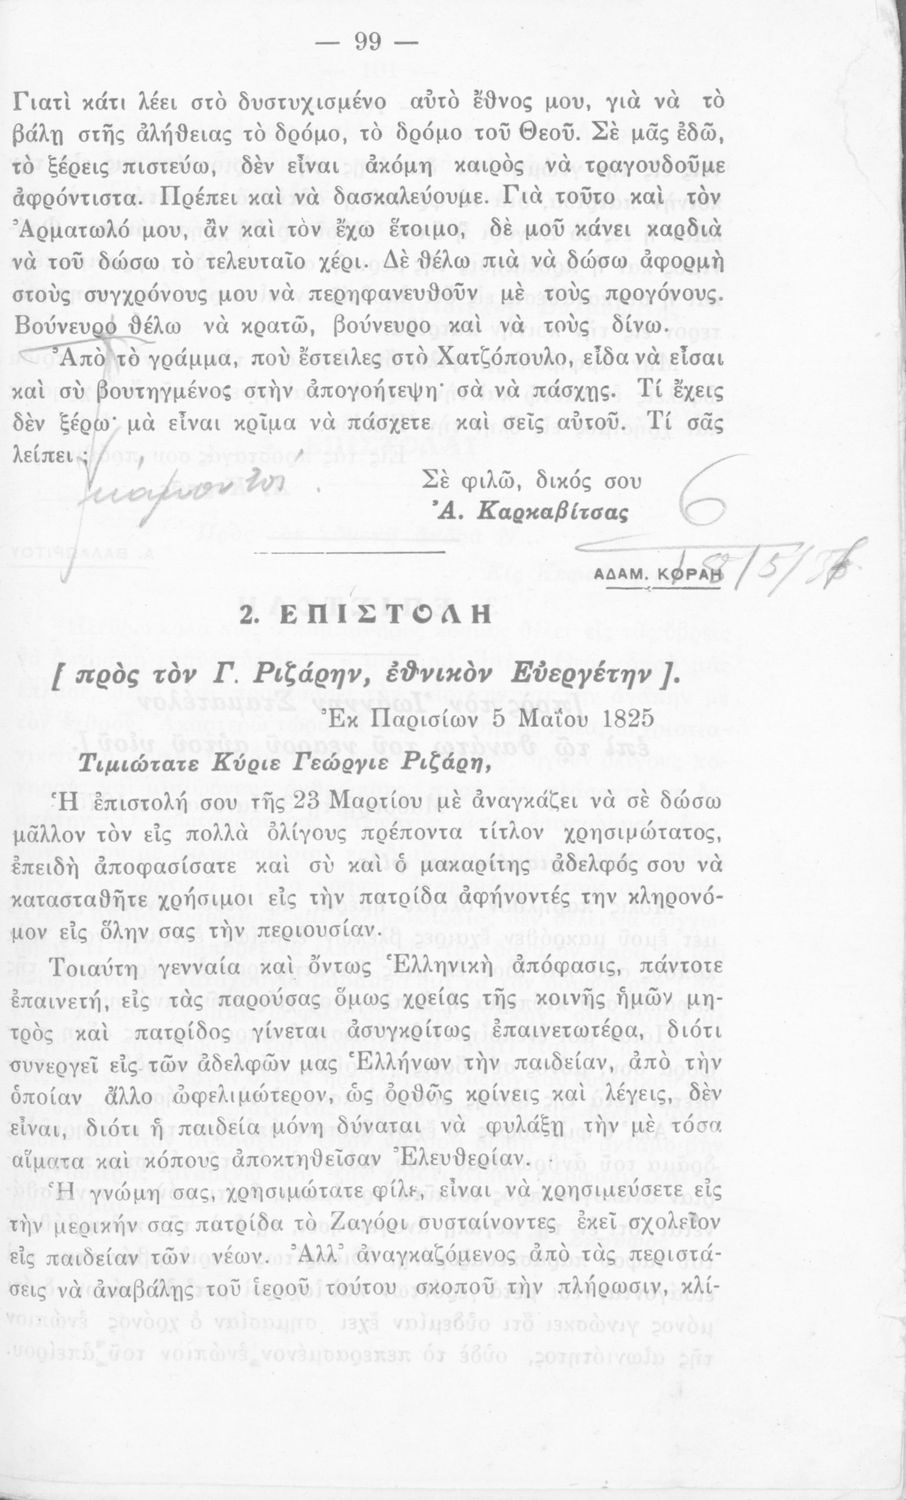 — 99 —
Γιατὶ κάτι λέει στὸ δυστυχισμένο αὐτὸ ἔθνος μου, γιὰ νὰ τὸ
βάλῃ στῆς ἀλήθειας τὸ δρόμο, τὸ δρόμο τοῦ Θεοῦ. Σὲ μᾶς ἐδῶ,
τὸ ξέρεις πιστεύω, δὲν εἶναι ἀκόμη καιρὸς νὰ τραγουδοῦμε
ἀφρόντιστα. Πρέπει καὶ νὰ δασκαλεύουμε. Γιὰ τοῦτο καὶ τὸν
Ἀρματωλό μου, ἂν καὶ τὸν ἔχω ἕτοιμο, δὲ μοῦ κάνει καρδιὰ
νὰ τοῦ δώσω τὸ τελευταῖο χέρι. Δὲ θέλω πιὰ νὰ δώσω ἀφορμὴ
στοὺς συγχρόνους μου νὰ περηφανευθοῦν μὲ τοὺς προγόνους.
Βούνευρο θέλω νὰ κρατῶ, βούνευρο καὶ νὰ τοὺς δίνω.
Ἀπὸ τὸ γράμμα, ποὺ ἔστειλες στὸ Χατζόπουλο, εἶδα νὰ εἶσαι
καὶ σὺ βουτηγμένος στὴν ἀπογοήτεψη· σὰ νὰ πάσχῃς. Τί ἔχεις
δὲν ξέρω· μὰ εἶναι κρῖμα νὰ πάσχετε καὶ σεῖς αὐτοῦ. Τί σᾶς
λείπει ;
Σὲ φιλῶ, δικός σου
Ἀ. Καρκαβίτσας
6
ΑΔΑΜ. ΚΟΡΑΗ
2. ΕΠΙΣΤΟΛΗ
[ πρὸς τὸν Γ. Ριζάρην, ἐθνικὸν Εὐεργέτην ].
Ἐκ Παρισίων 5 Μαΐου 1825
Τιμιώτατε Κύριε Γεώργιε Ριζάρη,
Ἡ ἐπιστολή σου τῆς 23 Μαρτίου μὲ ἀναγκάζει νὰ σὲ δώσω
μᾶλλον τὸν εἰς πολλὰ ὀλίγους πρέποντα τίτλον χρησιμώτατος,
ἐπειδὴ ἀποφασίσατε καὶ σὺ καὶ ὁ μακαρίτης ἀδελφός σου νὰ
κατασταθῆτε χρήσιμοι εἰς τὴν πατρίδα ἀφήνοντές την κληρονό-
μον εἰς ὅλην σας τὴν περιουσίαν.
Τοιαύτη γενναία καὶ ὄντως Ἑλληνικὴ ἀπόφασις, πάντοτε
ἐπαινετή, εἰς τὰς παρούσας ὅμως χρείας τῆς κοινῆς ἡμῶν μη-
τρὸς καὶ πατρίδος γίνεται ἀσυγκρίτως ἐπαινετωτέρα, διότι
συνεργεῖ εἰς τῶν ἀδελφῶν μας Ἑλλήνων τὴν παιδείαν, ἀπὸ τὴν
ὁποίαν ἄλλο ὠφελιμώτερον, ὡς ὀρθῶς κρίνεις καὶ λέγεις, δὲν
εἶναι, διότι ἡ παιδεία μόνη δύναται νὰ φυλάξῃ τὴν μὲ τόσα
αἵματα καὶ κόπους ἀποκτηθεῖσαν Ἐλευθερίαν.
Ἡ γνώμη σας, χρησιμώτατε φίλε, εἶναι νὰ χρησιμεύσετε εἰς
τὴν μερικήν σας πατρίδα τὸ Ζαγόρι συσταίνοντες ἐκεῖ σχολεῖον
εἰς παιδείαν τῶν νέων. Ἀλλ' ἀναγκαζόμενος ἀπὸ τὰς περιστά-
σεις νὰ ἀναβάλῃς τοῦ ἱεροῦ τούτου σκοποῦ τὴν πλήρωσιν, κλί-